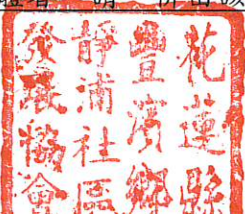 花蓮縣
豐濱鄉
靜浦社區
發展協會